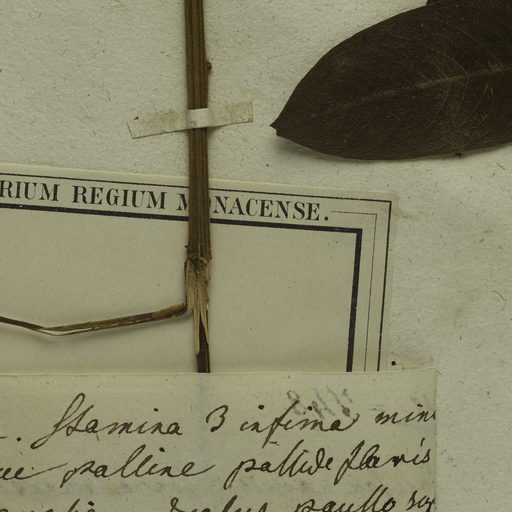 RIUM REGIUM MONACENSE.
Stamina 3 infima min
palline pallide flavis
paullo